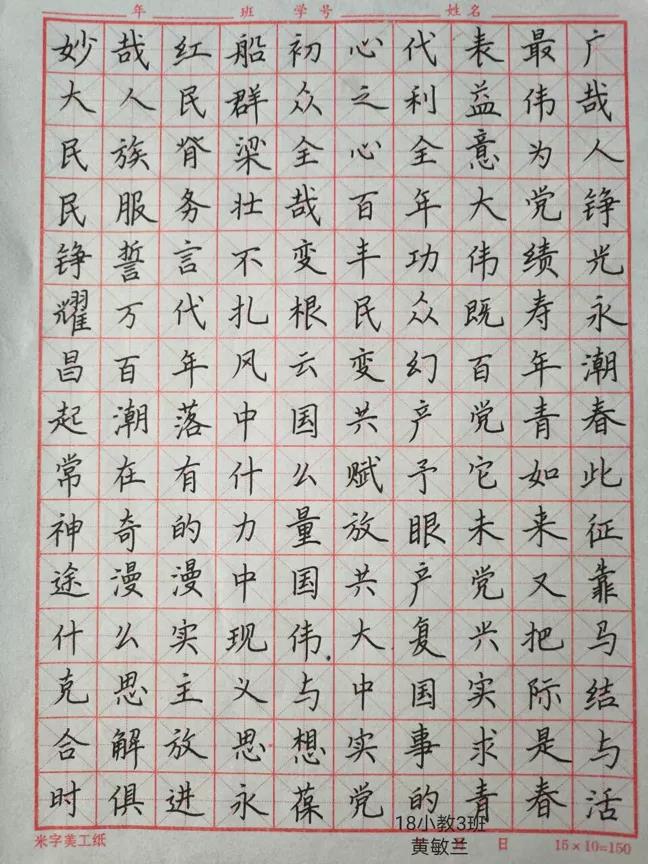 年 班 学号 姓名
妙哉红船初心代表最广
大人民群众之利益伟哉
民族脊梁全心全意为人
民服务壮哉百年大党铮
铮誓言不变丰功伟绩光
耀万代扎根民众既寿永
昌百年风云变幻百年潮
起潮落中国共产党青春
常在有什么赋予它如此
神奇的力量放眼未来征
途漫漫中国共产党又靠
什么实现伟大复兴把马
克思主义与中国实际结
合解放思想实事求是与
时俱进永葆党的青春活
18小教3班
黄敏兰
米字美工纸 日 15×10=150